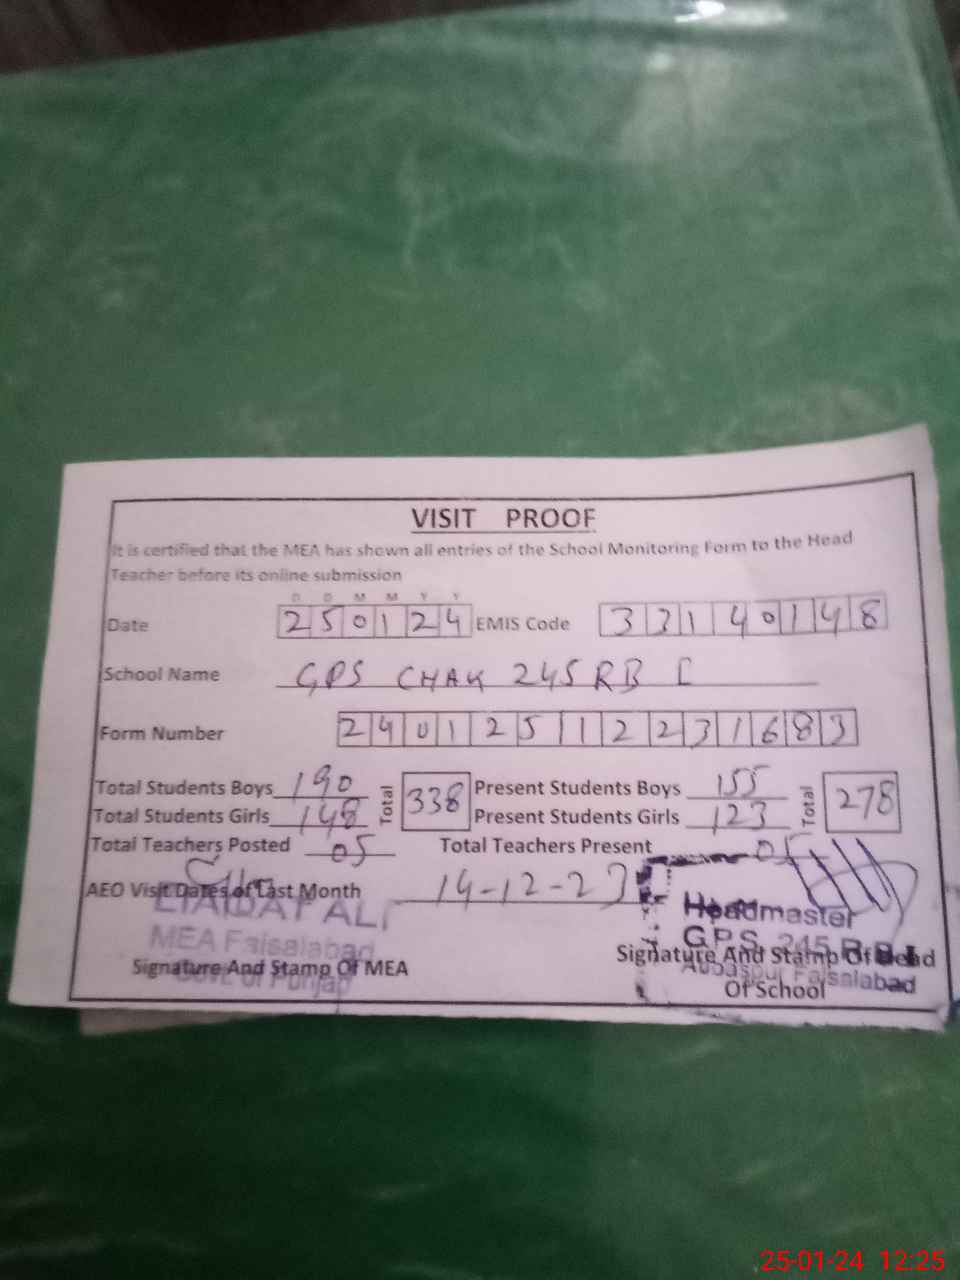 VISIT PROOF
It is certified that the MEA has shown all entries of the School Monitoring Form to the Head
Teacher before its online submission
D D M M Y Y
Date 250124 EMIS Code 33140148
School Name GPS CHAK 245 RB I
Form Number 24012512231683
Total Students Boys 190 Total 338 Present Students Boys 155 Total 278
Total Students Girls 148 Present Students Girls 123
Total Teachers Posted 05 Total Teachers Present 05
AEO Visit Dates of Last Month 14-12-23
LIAQAT ALI
MEA Faisalabad
Govt. of Punjab
Signature And Stamp Of MEA
Headmaster
GPS 245 R.B I
Faisalabad
Signature And Stamp Of Head
Of School
25-01-24 12:25